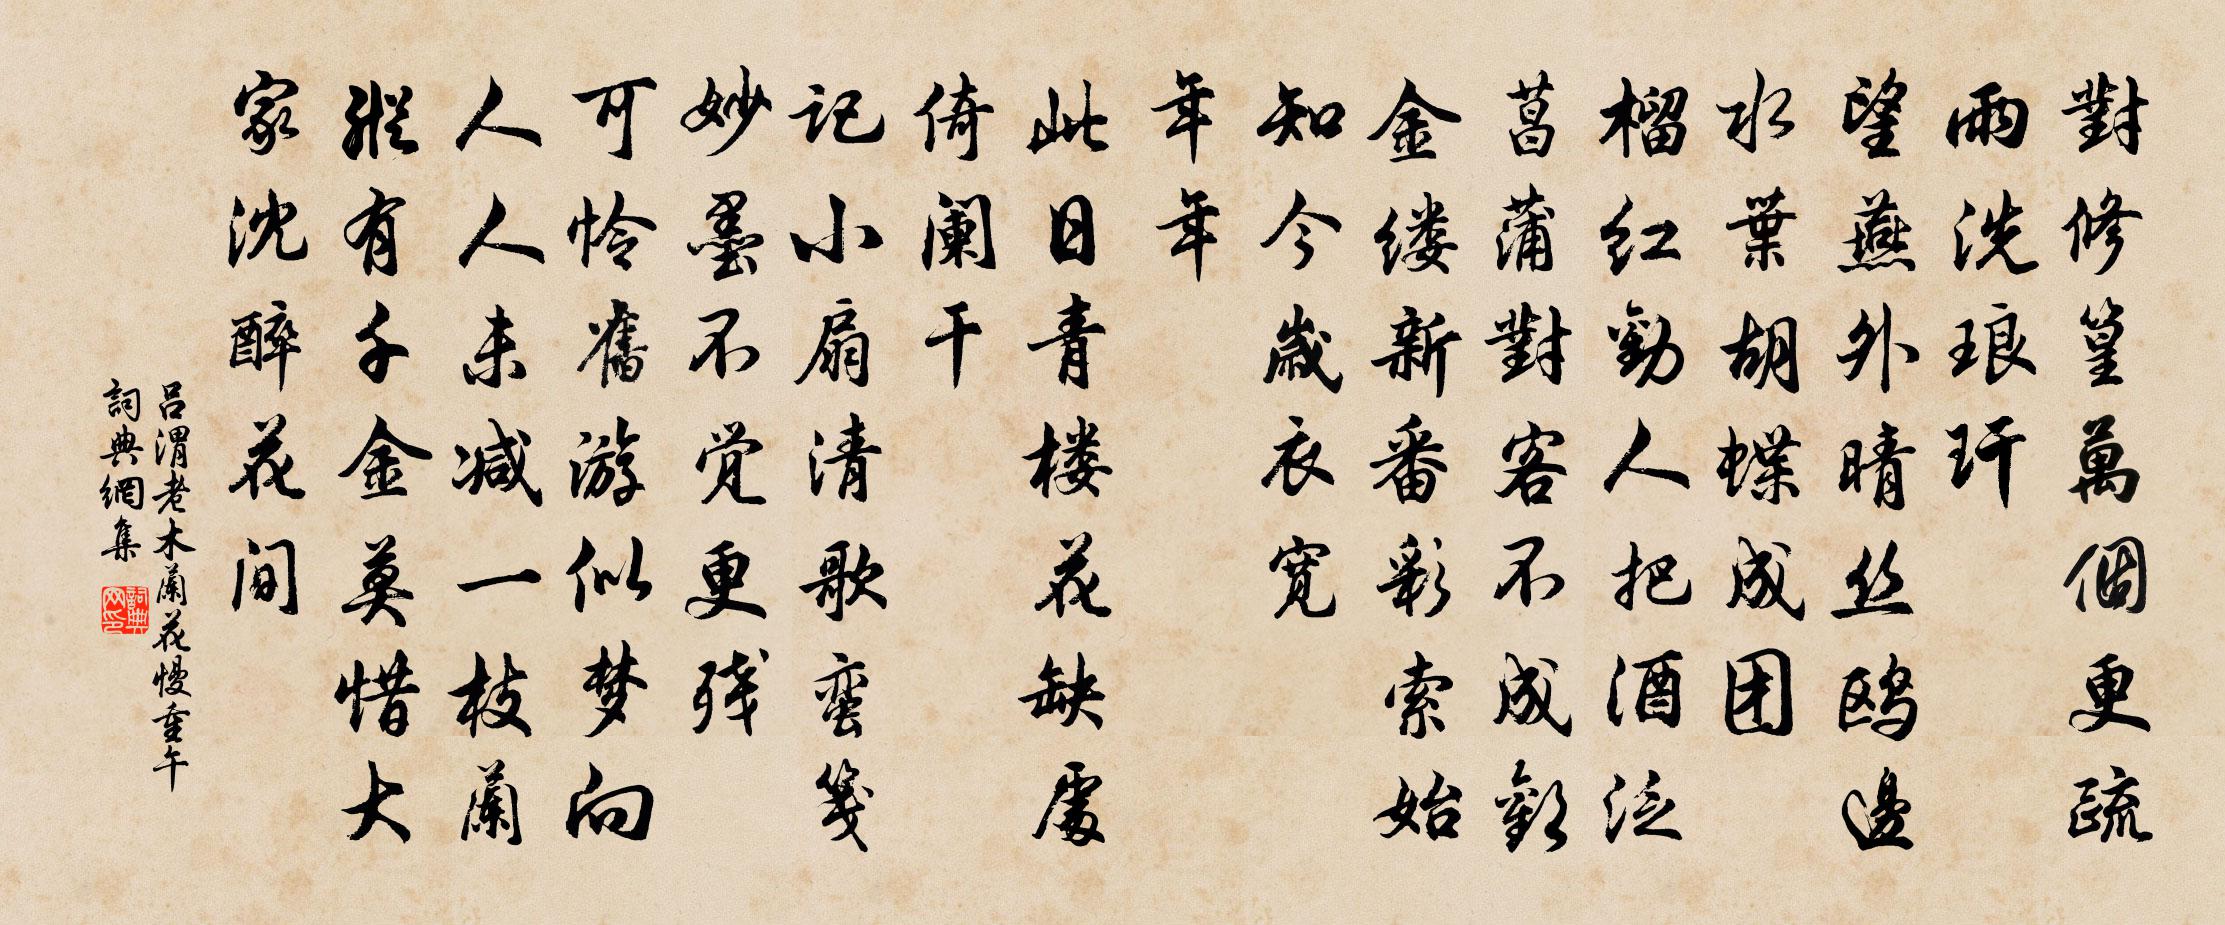 對修篁萬個更疏
雨洗琅玕
望燕外晴丝鸥邊
水葉胡蝶成团
榴红勸人把酒泛
菖蒲對客不成歡
金缕新番彩索始
知今歲衣宽
年年
此日青楼花缺處
倚阑干
记小扇清歌蛮笺
妙墨不觉更残
可怜舊游似梦向
人人未减一枝蘭
縱有千金莫惜大
家沈醉花间
吕渭老木蘭花慢重午
詞典網集
詞典网印